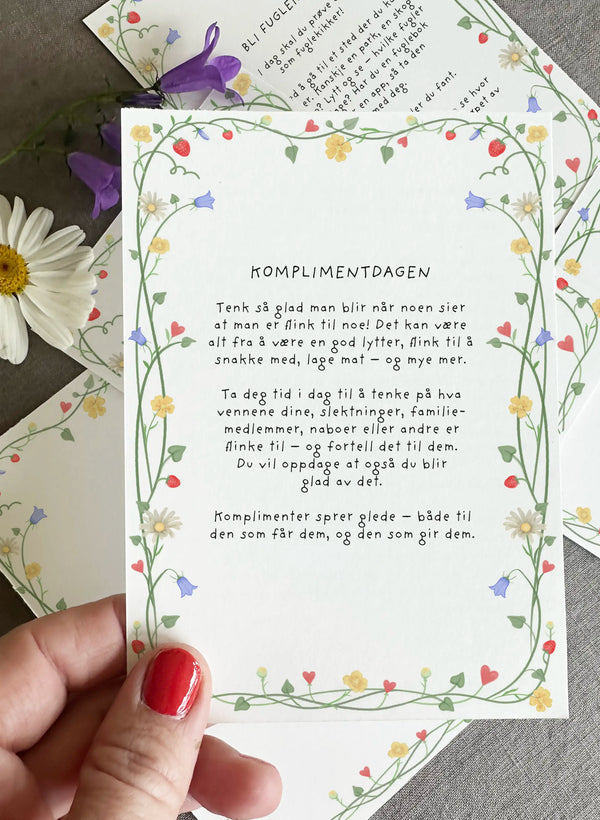 BLI FUGLE
I dag skal du prøve
som fuglekikker!
å gå til et sted der du
Kanskje en park, en skog
Lytt og se – hvilke fugler
Har du en fuglebok
en app, så ta den
med deg
du fant.
se hvor
av
KOMPLIMENTDAGEN
Tenk så glad man blir når noen sier
at man er flink til noe! Det kan være
alt fra å være en god lytter, flink til å
snakke med, lage mat – og mye mer.
Ta deg tid i dag til å tenke på hva
vennene dine, slektninger, familie-
medlemmer, naboer eller andre er
flinke til – og fortell det til dem.
Du vil oppdage at også du blir
glad av det.
Komplimenter sprer glede – både til
den som får dem, og den som gir dem.